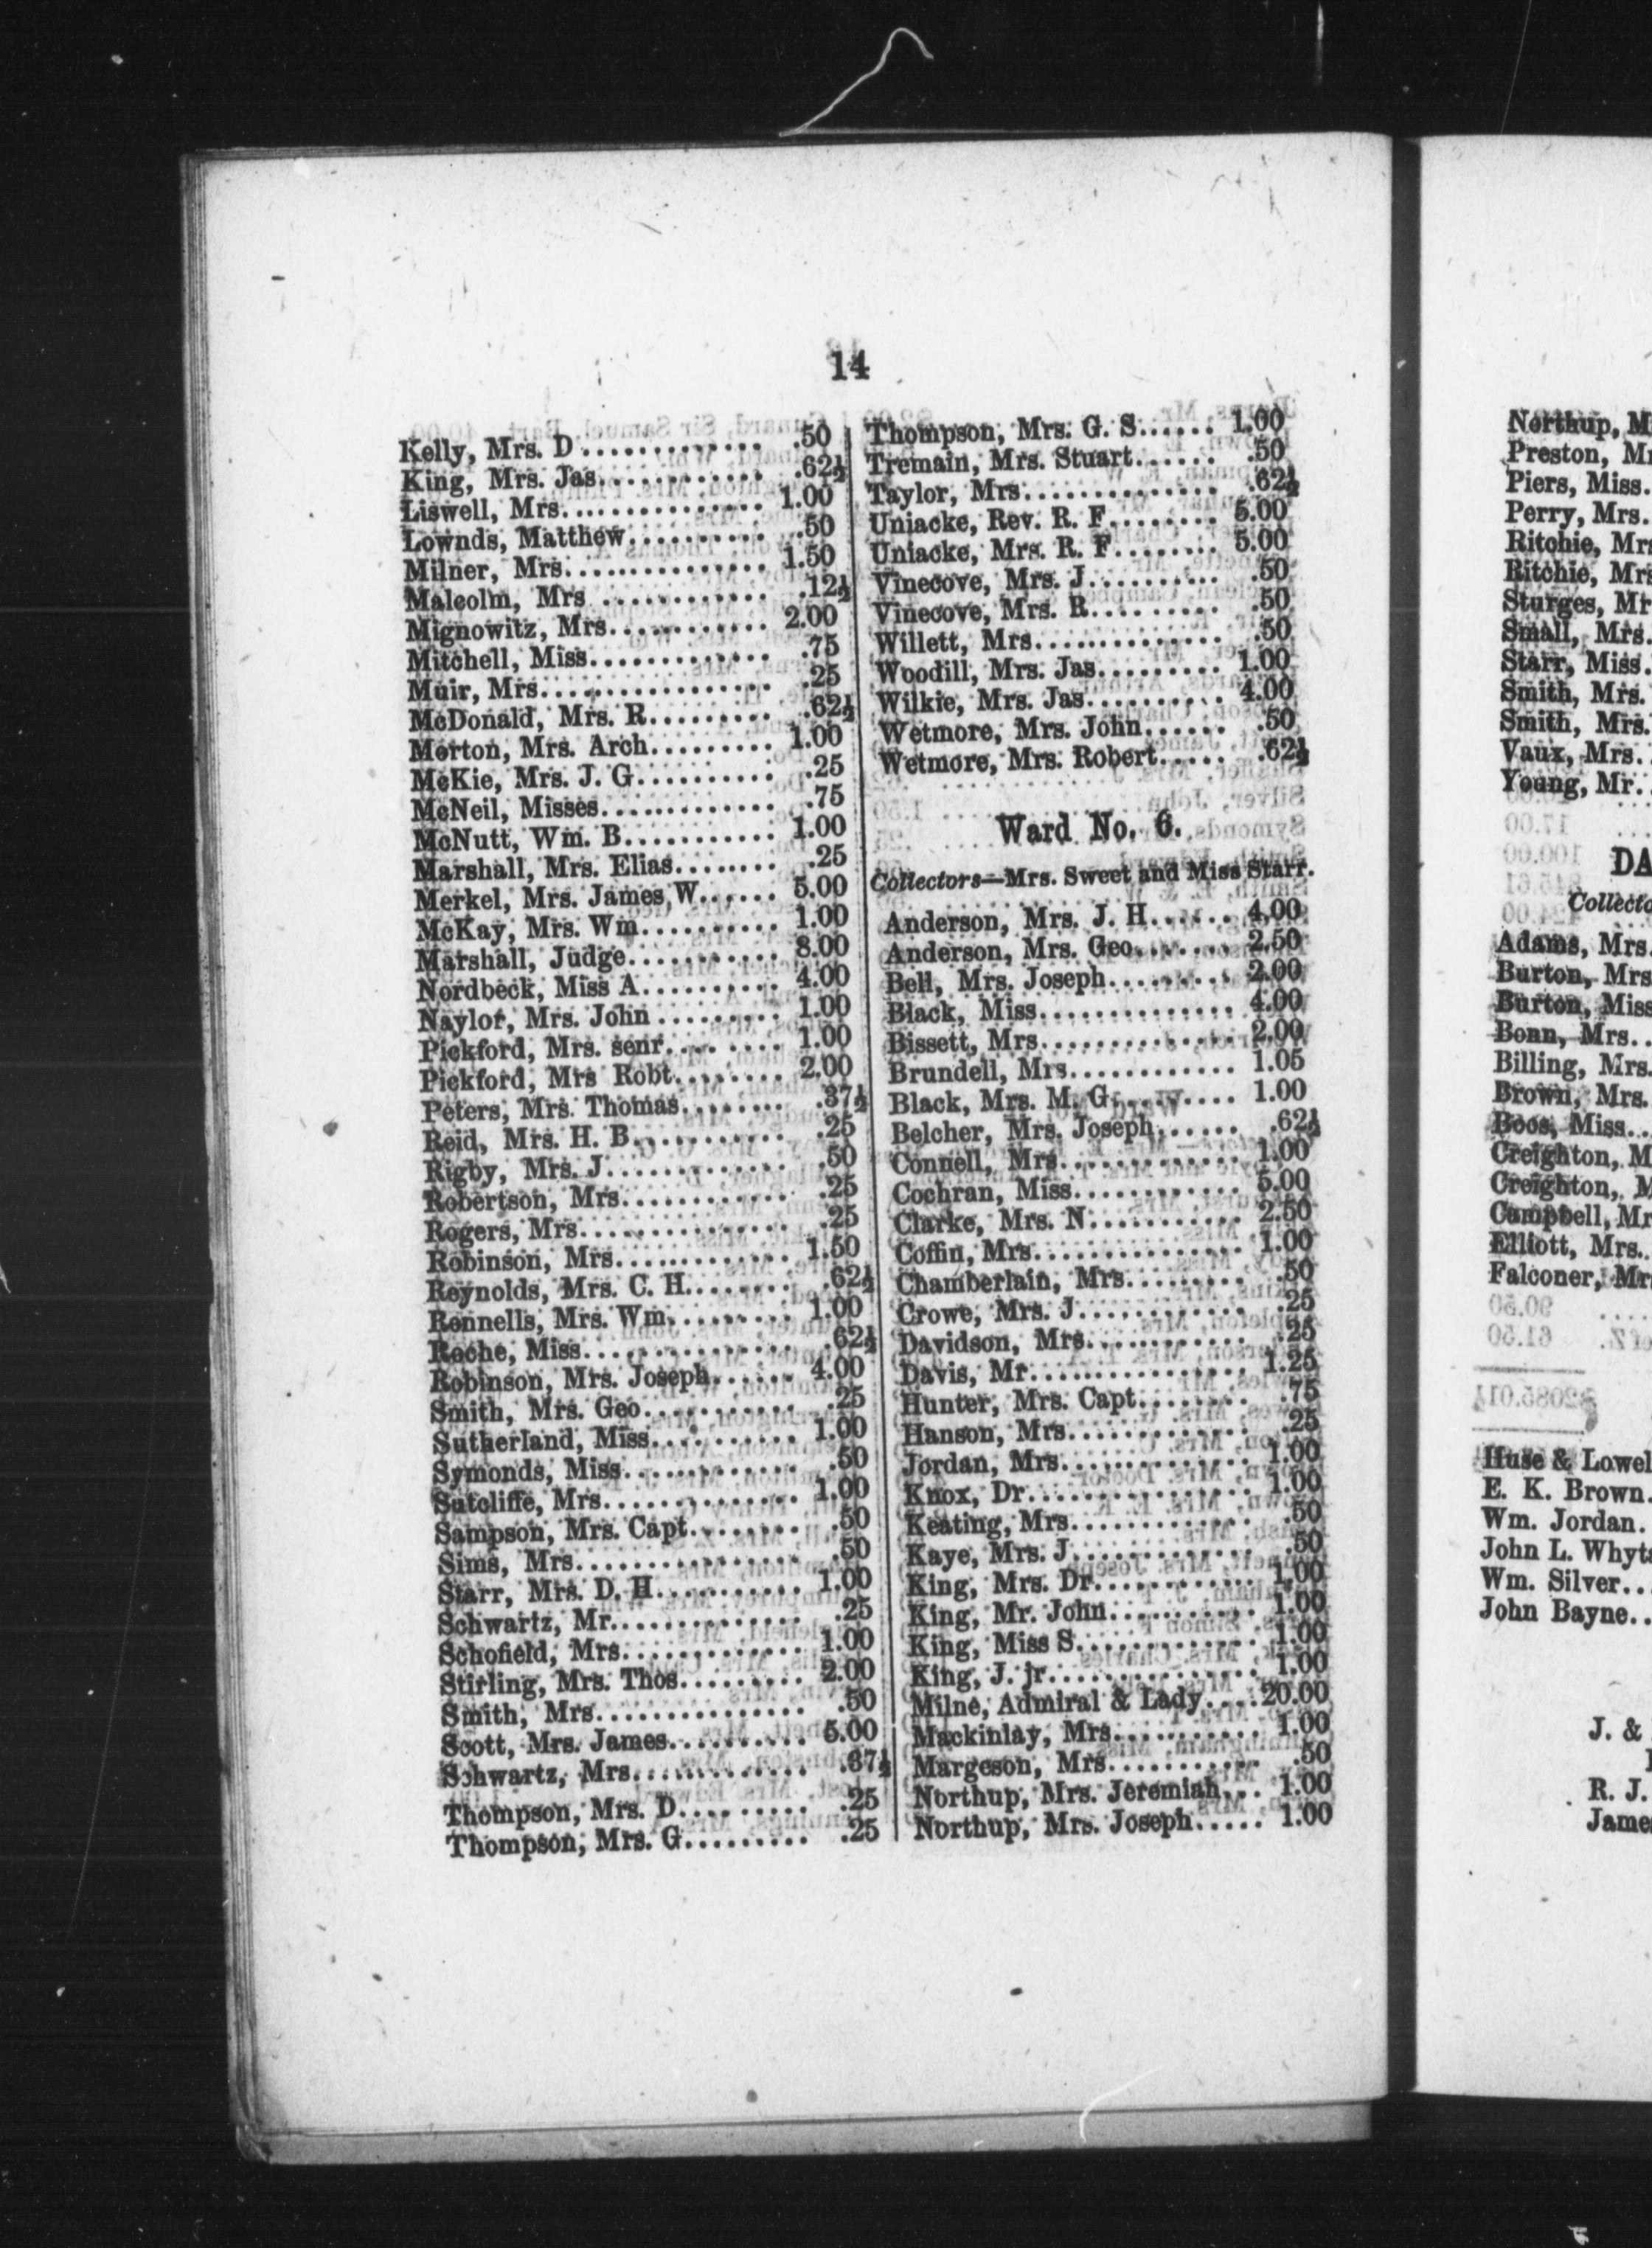 14
Kelly, Mrs. D ............. .50
King, Mrs. Jas............. .62½
Liswell, Mrs............... 1.00
Lownds, Matthew.......... .50
Milner, Mrs............... 1.50
Malcolm, Mrs ............ .12½
Mignowitz, Mrs............ 2.00
Mitchell, Miss............. .75
Muir, Mrs................. .25
McDonald, Mrs. R......... .62½
Morton, Mrs. Arch......... 1.00
McKie, Mrs. J. G.......... .25
McNeil, Misses............. .75
McNutt, Wm. B........... 1.00
Marshall, Mrs. Elias........ .25
Merkel, Mrs. James W...... 5.00
McKay, Mrs. Wm.......... 1.00
Marshall, Judge........... 8.00
Nordbeck, Miss A.......... 4.00
Naylor, Mrs. John ......... 1.00
Pickford, Mrs. senr......... 1.00
Pickford, Mrs Robt........ 2.00
Peters, Mrs. Thomas........ .37½
Reid, Mrs. H. B........... .25
Rigby, Mrs. J.............. .50
Robertson, Mrs............ .25
Rogers, Mrs............... .25
Robinson, Mrs............ 1.50
Reynolds, Mrs. C. H....... .62½
Rennells, Mrs. Wm......... 1.00
Roche, Miss............... .62½
Robinson, Mrs. Joseph...... 4.00
Smith, Mrs. Geo........... .25
Sutherland, Miss.......... 1.00
Symonds, Miss............ .50
Sutcliffe, Mrs.............. 1.00
Sampson, Mrs. Capt........ .50
Sims, Mrs................. .50
Starr, Mrs. D. H.......... 1.00
Schwartz, Mr............. .25
Schofield, Mrs............. 1.00
Stirling, Mrs. Thos......... 2.00
Smith, Mrs............... .50
Scott, Mrs. James.......... 5.00
Schwartz, Mrs............. .37½
Thompson, Mrs. D......... .25
Thompson, Mrs. G......... .25
Thompson, Mrs. G. S...... 1.00
Tremain, Mrs. Stuart...... .50
Taylor, Mrs............... .62½
Uniacke, Rev. R. F........ 5.00
Uniacke, Mrs. R. F........ 5.00
Vinecove, Mrs. J.......... .50
Vinecove, Mrs. R.......... .50
Willett, Mrs.............. .50
Woodill, Mrs. Jas......... 1.00
Wilkie, Mrs. Jas.......... 4.00
Wetmore, Mrs. John...... .50
Wetmore, Mrs. Robert..... .62½
Ward No. 6.
Collectors—Mrs. Sweet and Miss Starr.
Anderson, Mrs. J. H...... 4.00
Anderson, Mrs. Geo....... 2.50
Bell, Mrs. Joseph......... 2.00
Black, Miss.............. 4.00
Bissett, Mrs.............. 2.00
Brundell, Mrs............ 1.05
Black, Mrs. M. G......... 1.00
Belcher, Mrs. Joseph...... .62½
Connell, Mrs............. 1.00
Cochran, Miss............ 5.00
Clarke, Mrs. N........... 2.50
Coffin, Mrs............... 1.00
Chamberlain, Mrs......... .50
Crowe, Mrs. J............ .25
Davidson, Mrs........... .25
Davis, Mr................ 1.25
Hunter, Mrs. Capt........ .75
Hanson, Mrs............. .25
Jordan, Mrs.............. 1.00
Knox, Dr................ 1.00
Keating, Mrs............. .50
Kaye, Mrs. J............. .50
King, Mrs. Dr............ 1.00
King, Mr. John........... 1.00
King, Miss S............. 1.00
King, J. jr................ 1.00
Milne, Admiral & Lady....20.00
Mackinlay, Mrs.......... 1.00
Margeson, Mrs........... .50
Northup, Mrs. Jeremiah... 1.00
Northup, Mrs. Joseph..... 1.00
Northup, M
Preston, M
Piers, Miss.
Perry, Mrs.
Ritchie, Mrs
Ritchie, Mrs
Sturges, Mr
Small, Mrs.
Starr, Miss.
Smith, Mrs.
Smith, Mrs.
Vaux, Mrs.
Young, Mr.
DA
Collecto
Adams, Mrs.
Burton, Mrs
Burton, Miss
Bonn, Mrs..
Billing, Mrs.
Brown, Mrs.
Boos, Miss..
Creighton, M
Creighton, M
Campbell, Mr
Elliott, Mrs..
Falconer, Mr
Huse & Lowel
E. K. Brown.
Wm. Jordan.
John L. Whyt
Wm. Silver..
John Bayne..
J. &
R. J.
Jame